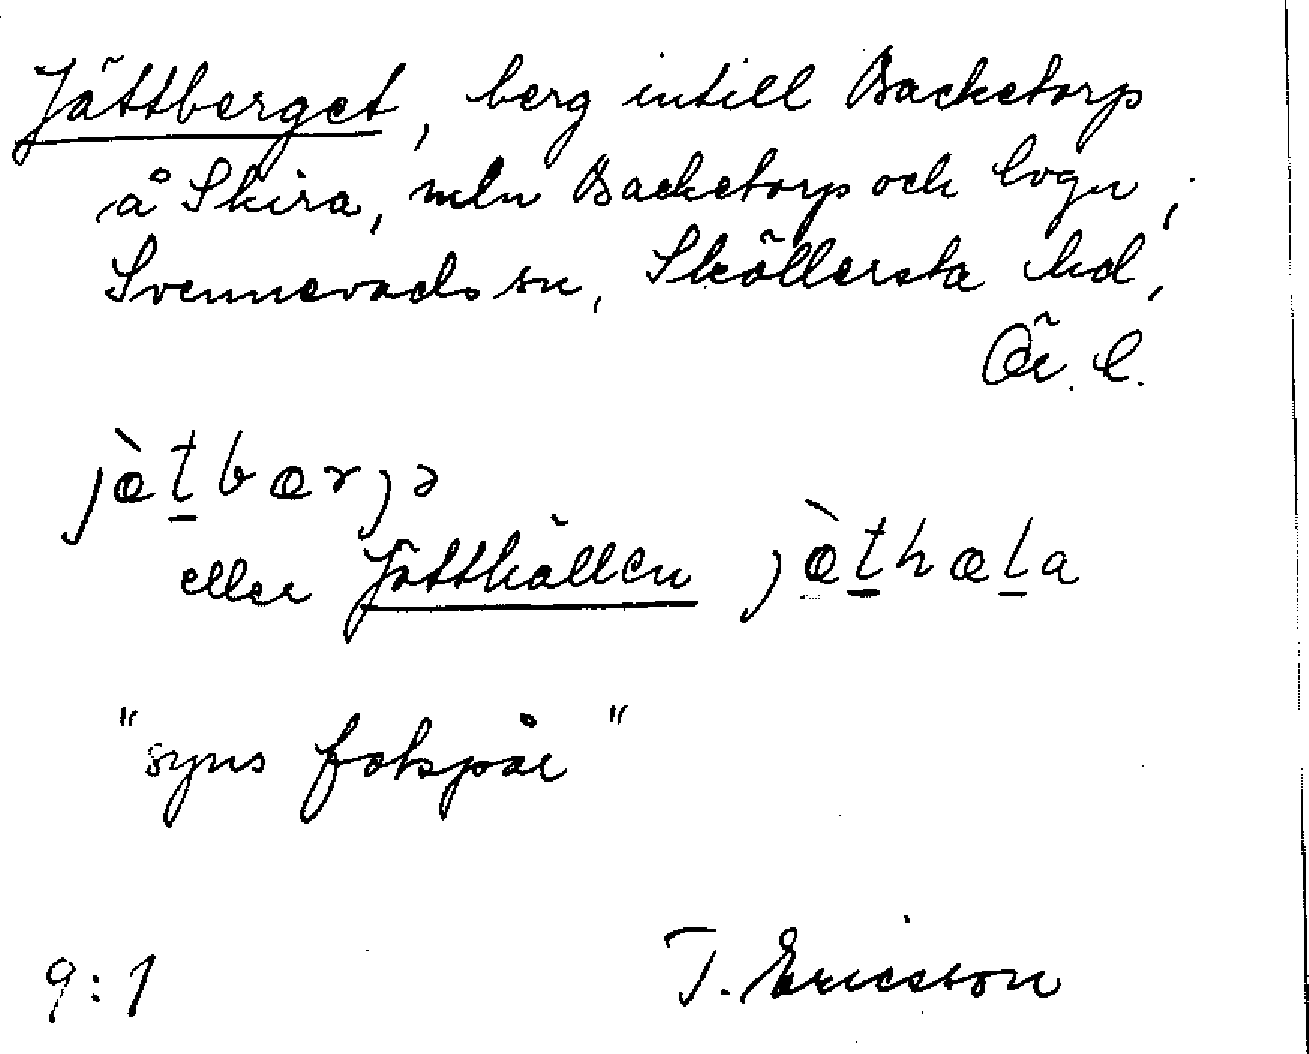 Jättberget, berg intill Backetorp
å Skira, mln Backetorp och
Svennevads sn, Sköllersta hd,
Ör. l.
jæ̀t̠bærjə
eller Jätthällen jæ̀t̠hæl̠a
"syns fotspår"
9:1 T. Ericsson